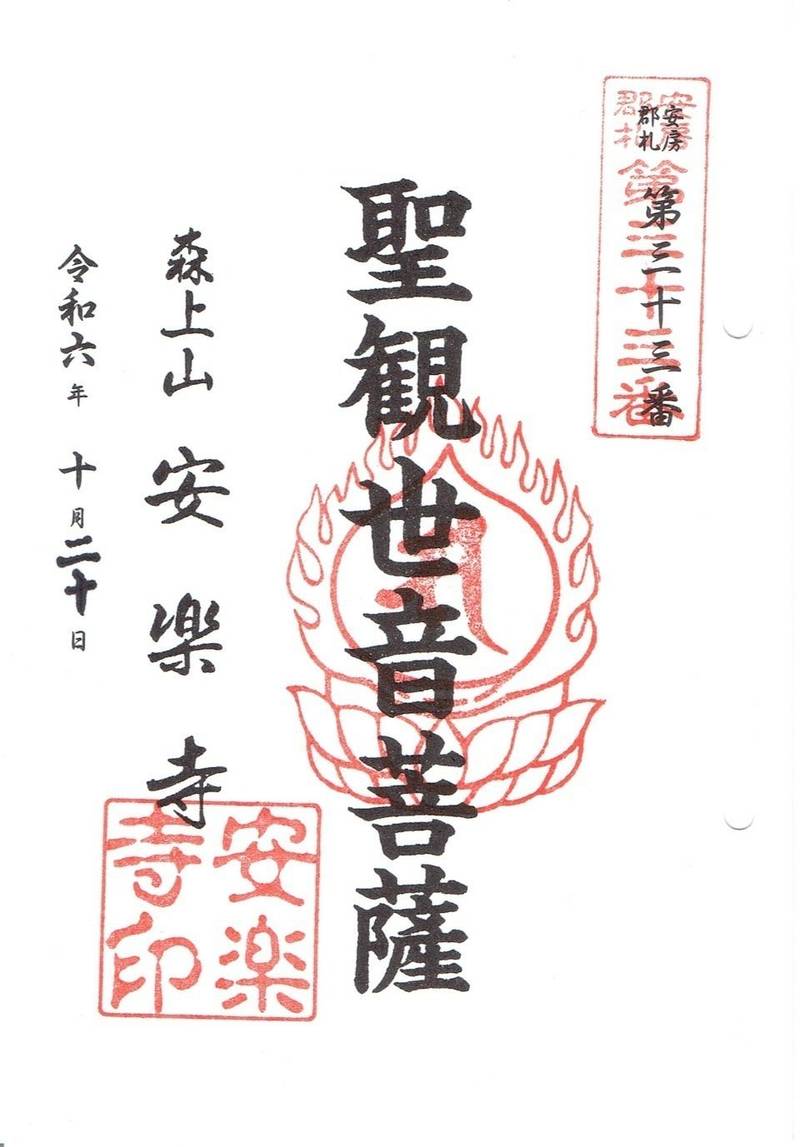 安房郡札 第三十三番
安房郡札 第三十三番
聖観世音菩薩
森上山 安楽寺
安楽寺印
令和六年 十月二十日